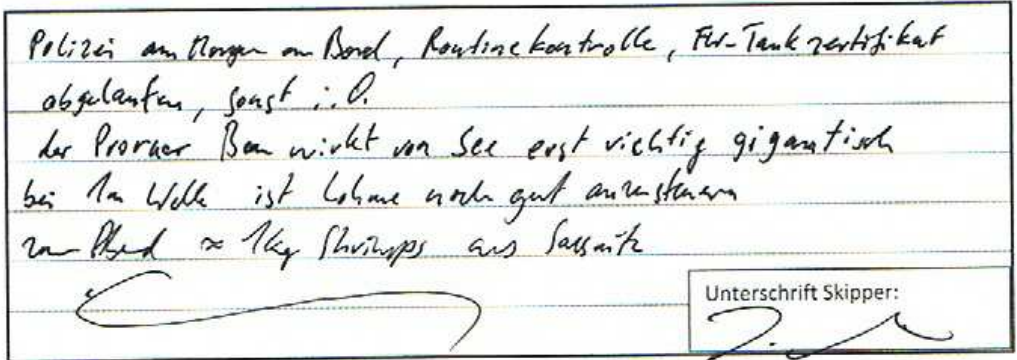 Polizei am Morgen an Bord, Routinekontrolle, FW-Tankzertifikat
abgelaufen, sonst i.O.
der Proraer Bau wirkt von See erst richtig gigantisch
bei 1m Welle ist Lohme noch gut anzusteuern
zum Abend ≈ 1kg Shrimps aus Sassnitz
Unterschrift Skipper: